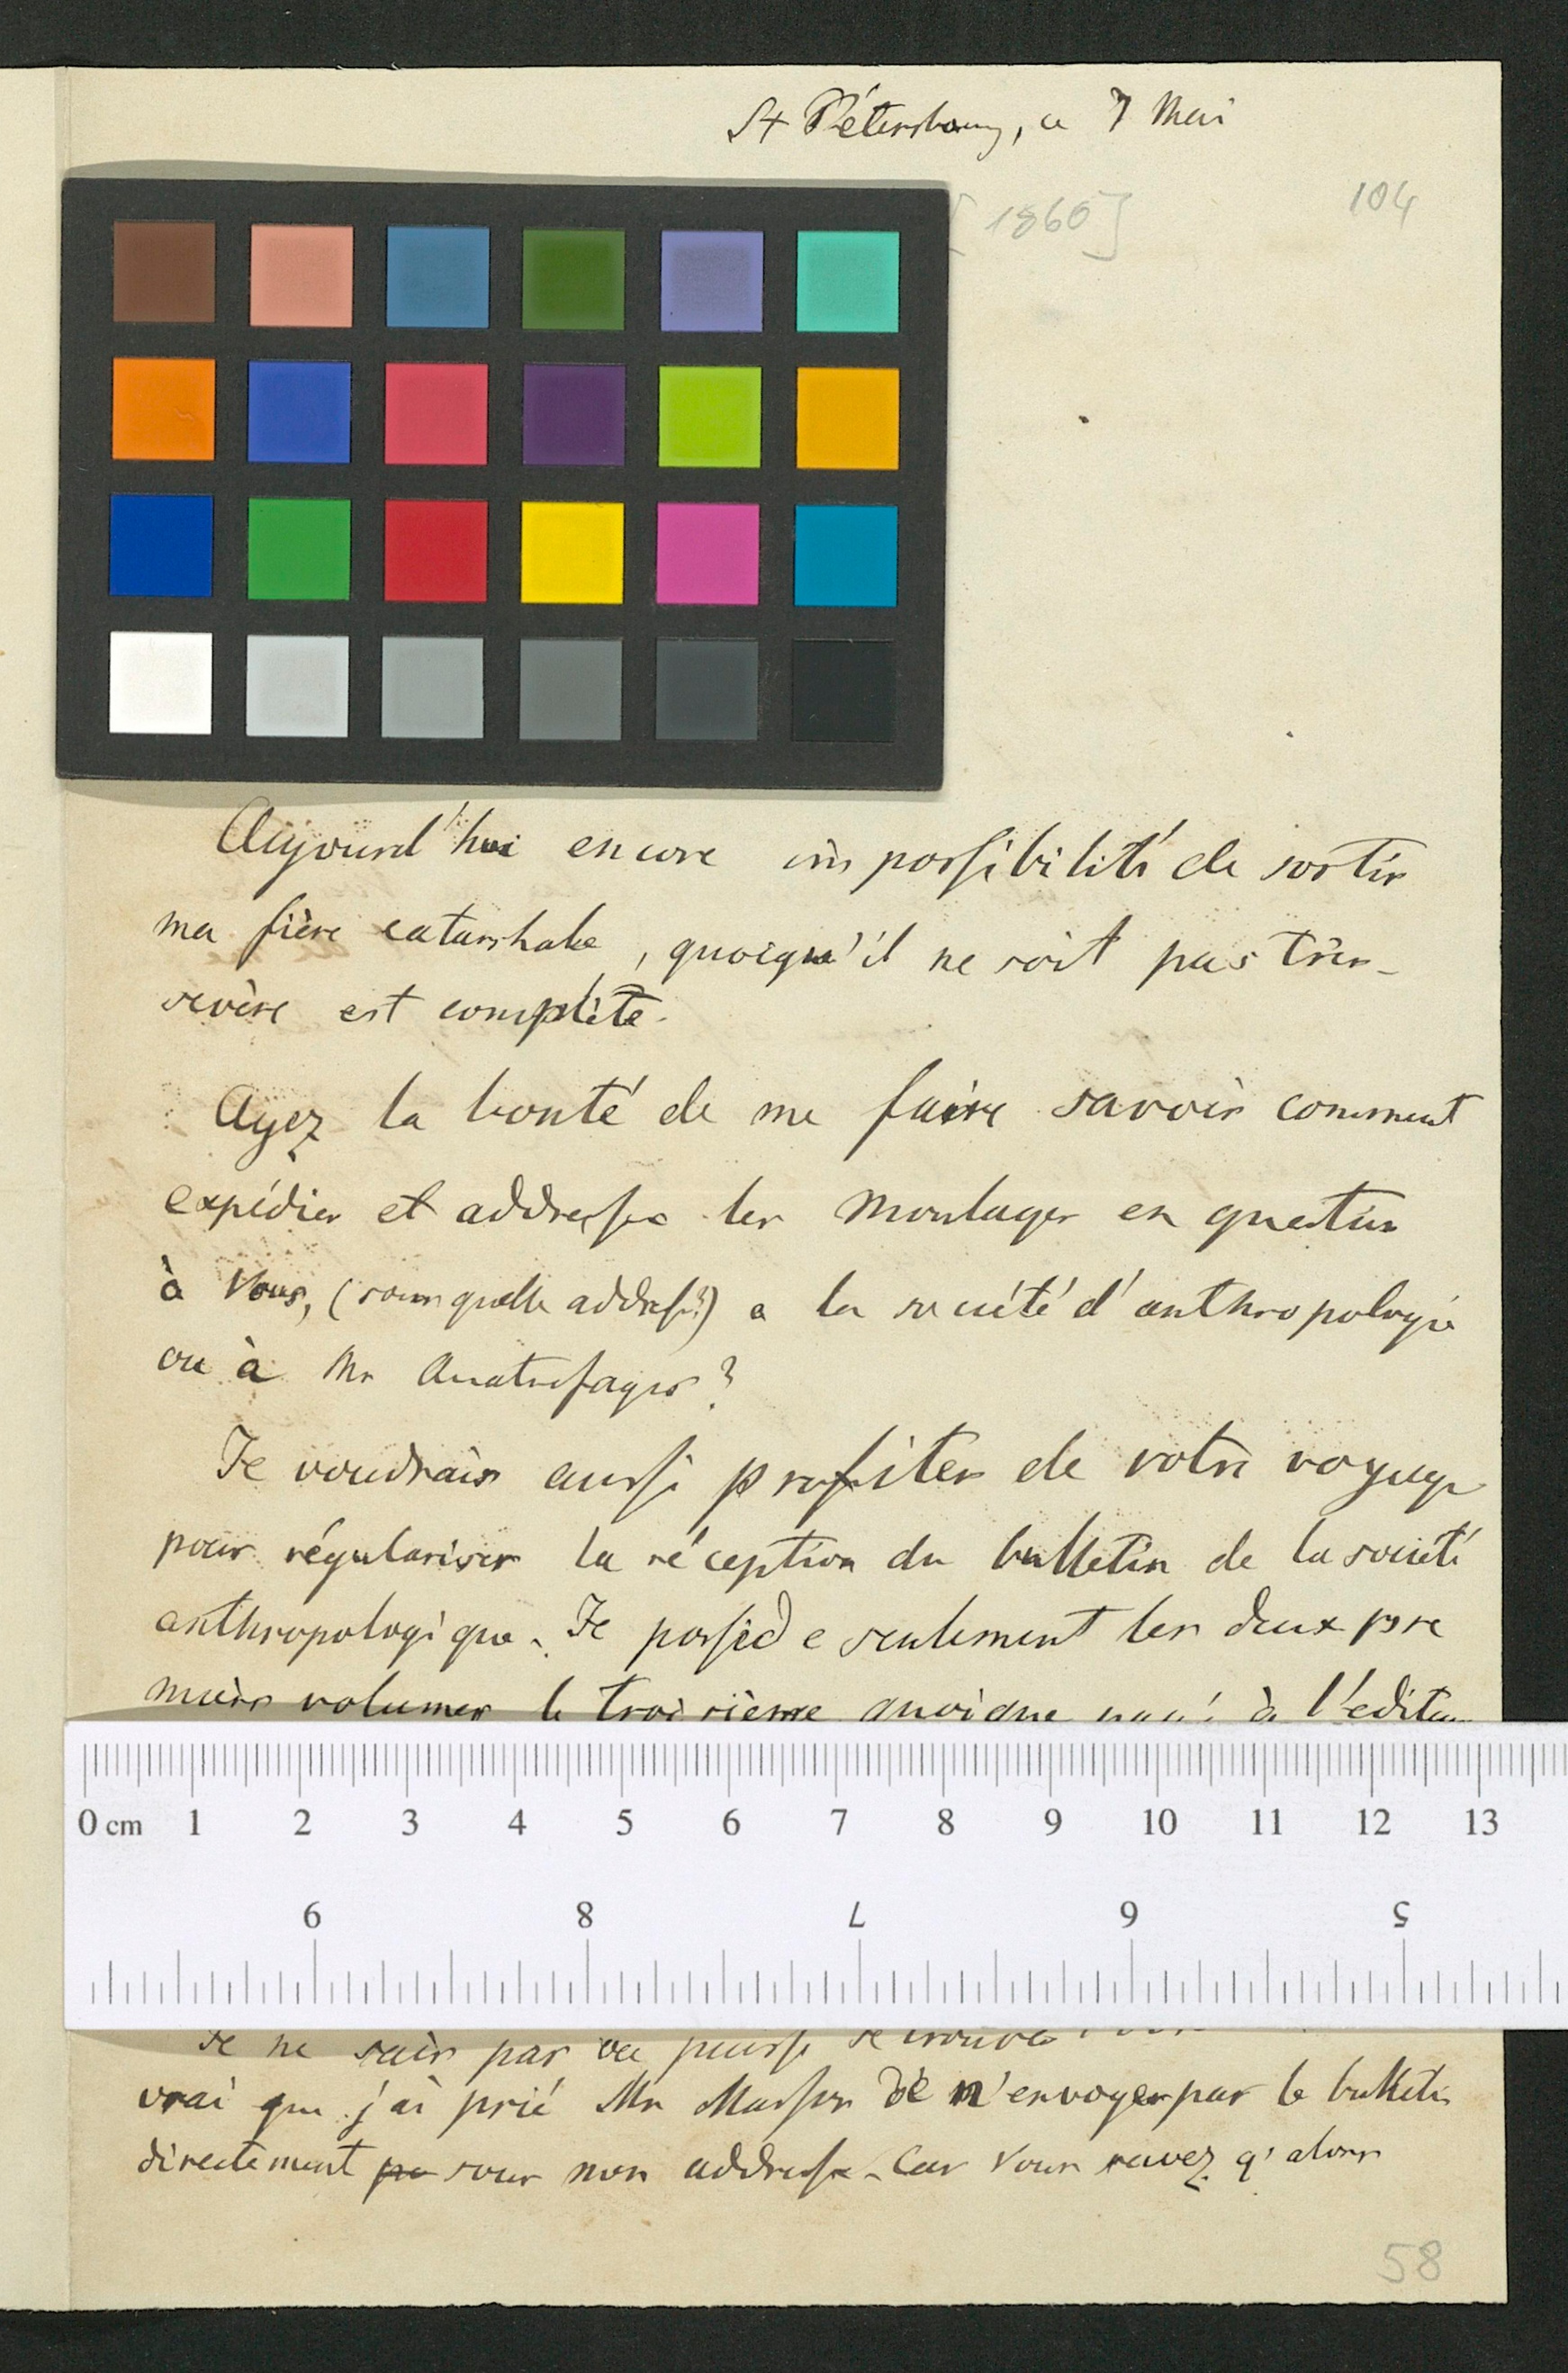 St Pétersbourg, ce 7 Mai
[1860]
104
Aujourd'hui encore impossibilité de sortir
ma fièvre catarrhale, quoiqu'il ne soit pas très-
sevère est complète.
Ayez la bonté de me faire savoir comment
expédier et addresser les moulages en question
à Vous, (sous quelle addresse?) a la société d'anthropologie
ou à Mr Quatrefages?
Je voudrais aussi profiter de votre voyage
pour régulariser la réception du bulletin de la société
anthropologique. Je possède seulement les deux pre
miers volumes le troisième quoique payé à l'editeur
0 cm 1 2 3 4 5 6 7 8 9 10 11 12 13
9 8 7 6 5
Je ne sais pas ou puisse se trouver
vrai que j'ai prié Mr Masson de n'envoyer pas le bulletin
directement sous mon addresse. Car Vous savez q'alors
58